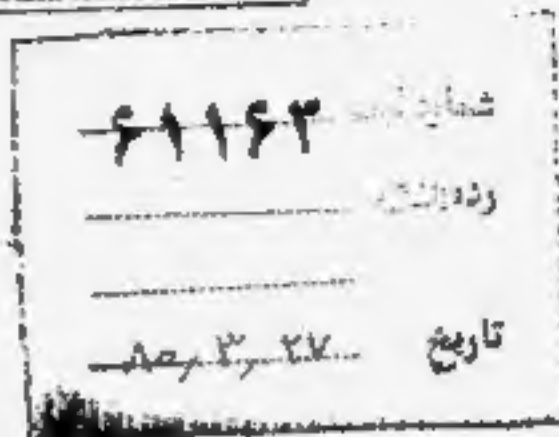 شماره ثبت ۶۱۱۶۳
تاریخ ۸۰,۳,۲۷